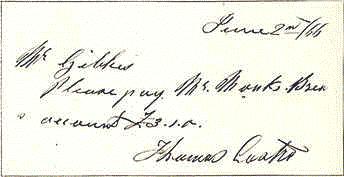 June 2nd/66
Mr Gibbes
Please pay Mr. Monks
account £3.1.0.
Thomas